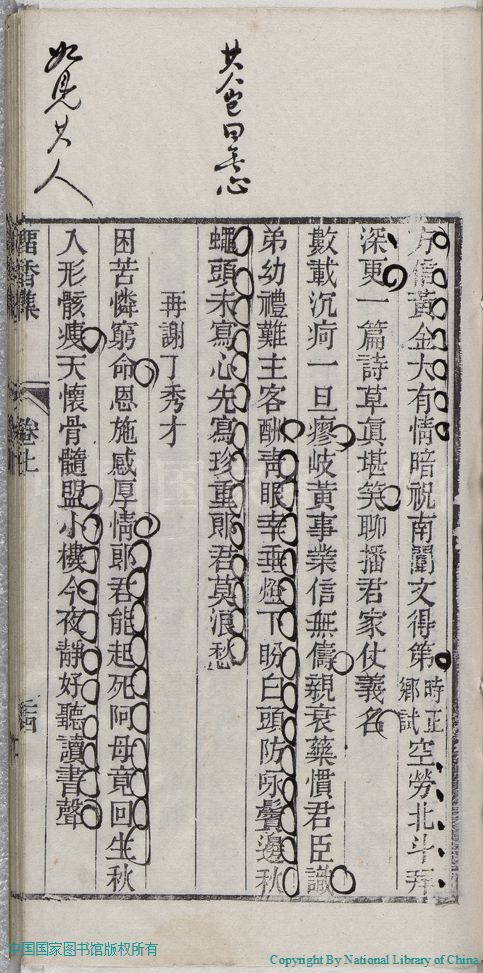 其人豈曰無心
如見其人
方信黃金大有情暗祝南闈文得第時正鄉試空勞北斗拜
深更一篇詩草眞堪笑聊播君家仗義名
數載沉疴一旦瘳岐黃事業信無儔親衰藥慣君臣識
弟幼禮難主客酬靑眼幸垂燈下盼白頭防咏鬢邊秋
蠅頭未寫心先寫珍重郎君莫浪愁
再謝丁秀才
困苦憐窮命恩施感厚情郎君能起死阿母竟回生秋
入形骸瘦天懷骨髓盟小樓今夜靜好聽讀書聲
留香集
卷上
中国国家图书馆版权所有
Copyright By National Library of China